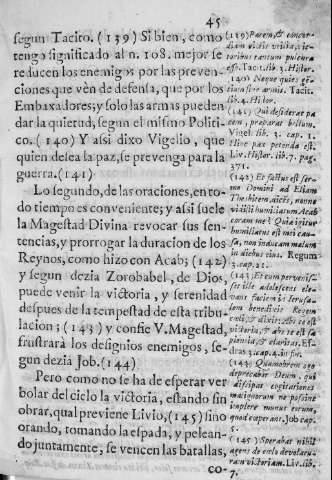 45
segun Tacito. (139) Si bien, como
tengo significado al n. 108. mejor se
reducen los enemigos por las preven-
ciones que vèn de defensa, que por los
Embaxadores; y solo las armas pueden
dar la quietud, segun el mismo Politi-
co. (140) Y assi dixo Vigelio, que
quien desea la paz, se prevenga para la
guerra. (141)
Lo segundo, de las oraciones, en to-
do tiempo es conveniente; y assi suele
la Magestad Divina revocar sus sen-
tencias, y prorrogar la duracion de los
Reynos, como hizo con Acab; (142)
y segun dezia Zorobabel, de Dios
puede venir la victoria, y serenidad
despues de la tempestad de esta tribu-
lacion; (143) y confie V. Magestad,
frustrarà los designios enemigos, se-
gun dezia Job. (144)
Pero como no se ha de esperar ver
bolar del ciclo la victoria, estando sin
obrar, qual previene Livio, (145) sino
orando, tomando la espada, y pelean-
do juntamente, se vencen las batallas,
co-
(139)
Tac. 1. lib. 3. Histor.
(140) Neque quies
sine armis. Tac.
lib. 4. Histor.
(141) Qui desiderat pa
cem, præparat bellum.
Vigel. lib. 3. cap. 1.
Liv. Histor. lib. 7. pag.
371.
(142) Et factus est ser-
mo Domini ad Eliam
Thesbitem, dicens, nonne
vidisti humiliatum Acab
coram me? Quia igitur
humiliatus est mei cau-
sa, non inducam malum
in diebus eius. Regum
3. cap. 21.
(143)
set ille adolescens ele-
vans faciem in Ierusa-
lem benedixit Regem
cœli, & dixit: Abs te est
victoria, & abs te est sa-
pientia, & claritas. Es-
dras 3. cap. 4. in fin.
(144) Quamobrem ego
deprecabor Deum, qui
dissipat cogitationes
malignorum ne possint
implere manus eorum,
quod cœperant. Job cap.
5.
(145) Sperabat nihil
agens de cielo devolatu-
ram victoriam. Liv. lib.
7.